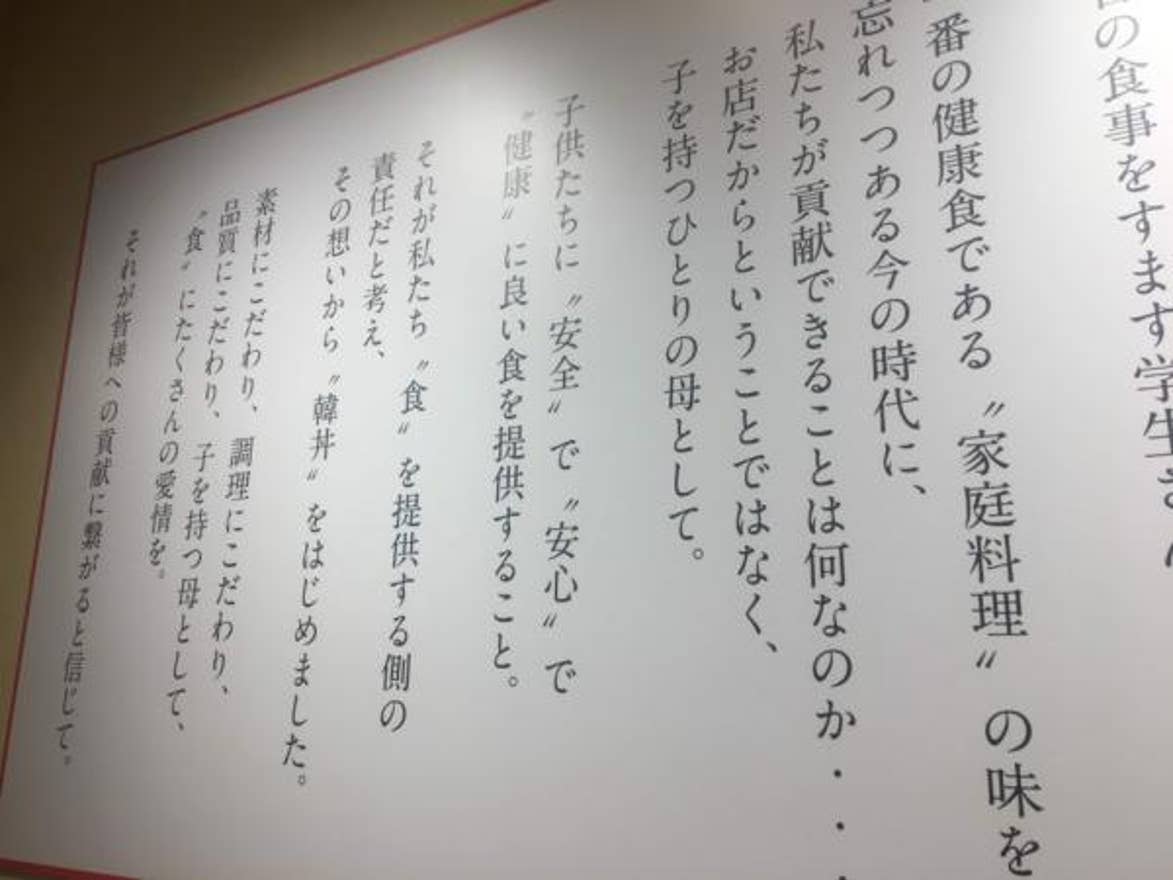 の食事をすます学生さん
番の健康食である〝家庭料理〟の味を
忘れつつある今の時代に、
私たちが貢献できることは何なのか・・・
お店だからということではなく、
子を持つひとりの母として。
子供たちに〝安全〟で〝安心〟で
〝健康〟に良い食を提供すること。
それが私たち〝食〟を提供する側の
責任だと考え、
その想いから〝韓丼〟をはじめました。
素材にこだわり、調理にこだわり、
品質にこだわり、子を持つ母として、
〝食〟にたくさんの愛情を。
それが皆様への貢献に繋がると信じて。